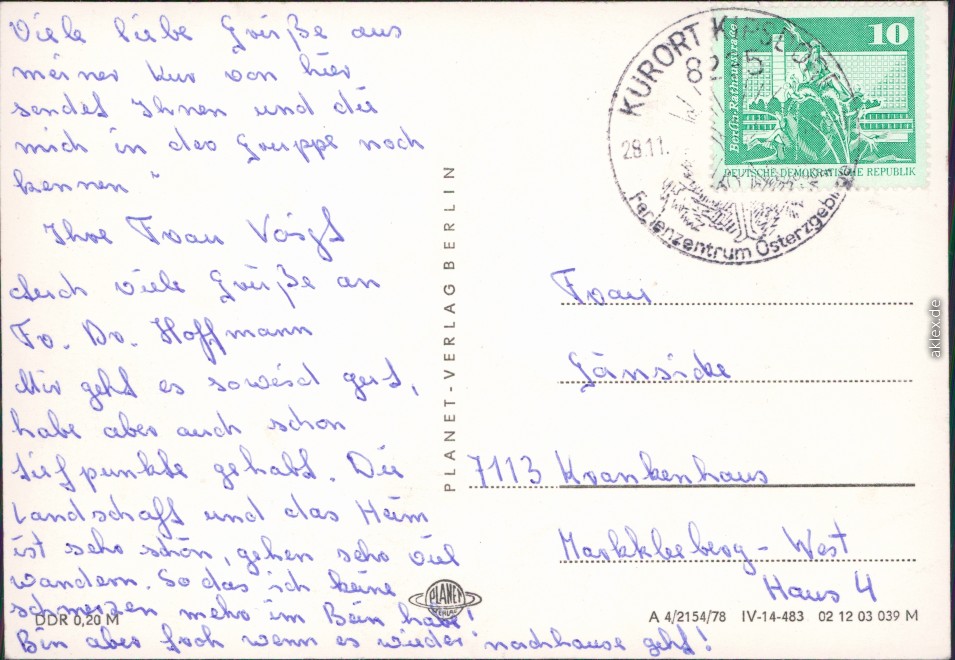 Viele liebe Grüße aus
meiner Kur von hier
sendet Ihnen und die
mich in der Gruppe noch
kennen"
Ihre Frau Voigt
Auch viele Grüße an
Fr. Dr. Hoffmann
Mir geht es soweid gut,
habe aber auch schon
tiefpunkte gehabt. Die
Landschaft und das Heim
ist sehr schön, gehen sehr viel
wandern. So das ich keine
schmerzen mehr im Bein habe!
Bin aber froh wenn es wieder nachhause geht!
DDR 0,20 M
PLANET-VERLAG BERLIN
PLANET
VERLAG
KURORT KIPSDORF
8235
28.11.
Ferienzentrum Osterzgebirge
10
Berlin-Rathausstraße
DEUTSCHE DEMOKRATISCHE REPUBLIK
Frau
Gänsicke
7113 Krankenhaus
Markkleeberg - West
Haus 4
A 4/2154/78 IV-14-483 02 12 03 039 M
aklex.de